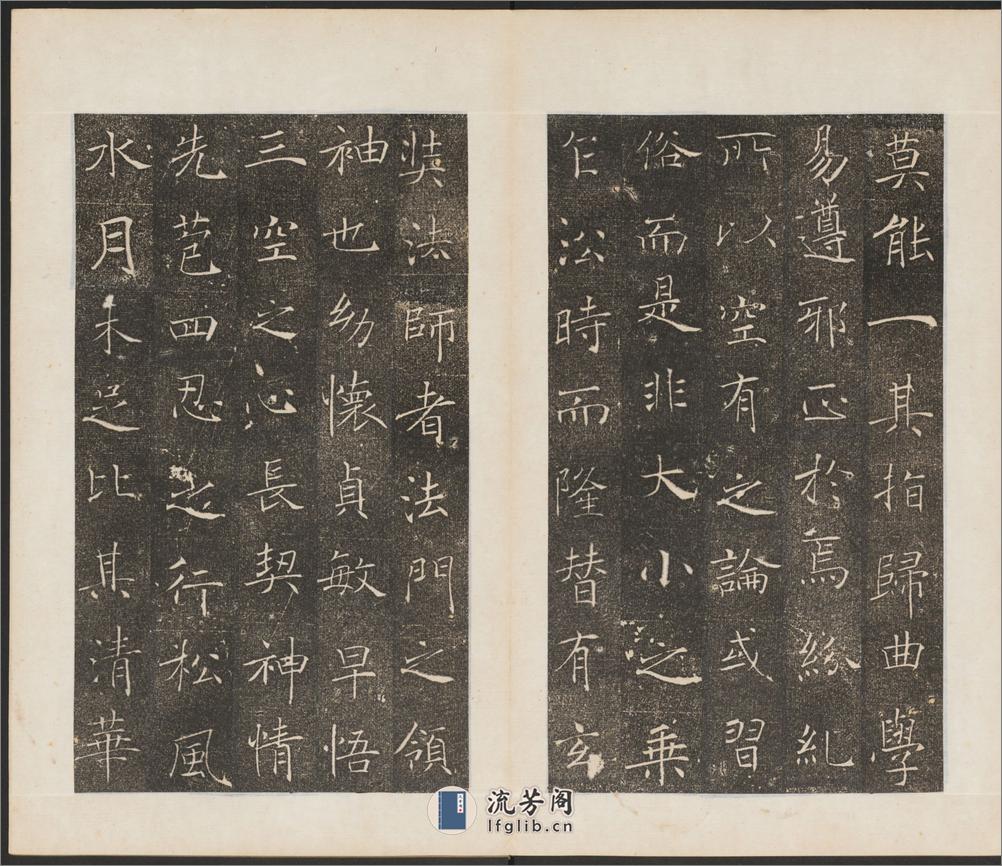 莫能一其指歸曲學
易遵邪正於焉紛糺
所以空有之論或習
俗而是非大小之乗
乍沿時而隆替有玄
奘法師者法門之領
袖也幼懷貞敏早悟
三空之心長契神情
先苞四忍之行松風
水月未足比其清華
流芳阁
lfglib.cn